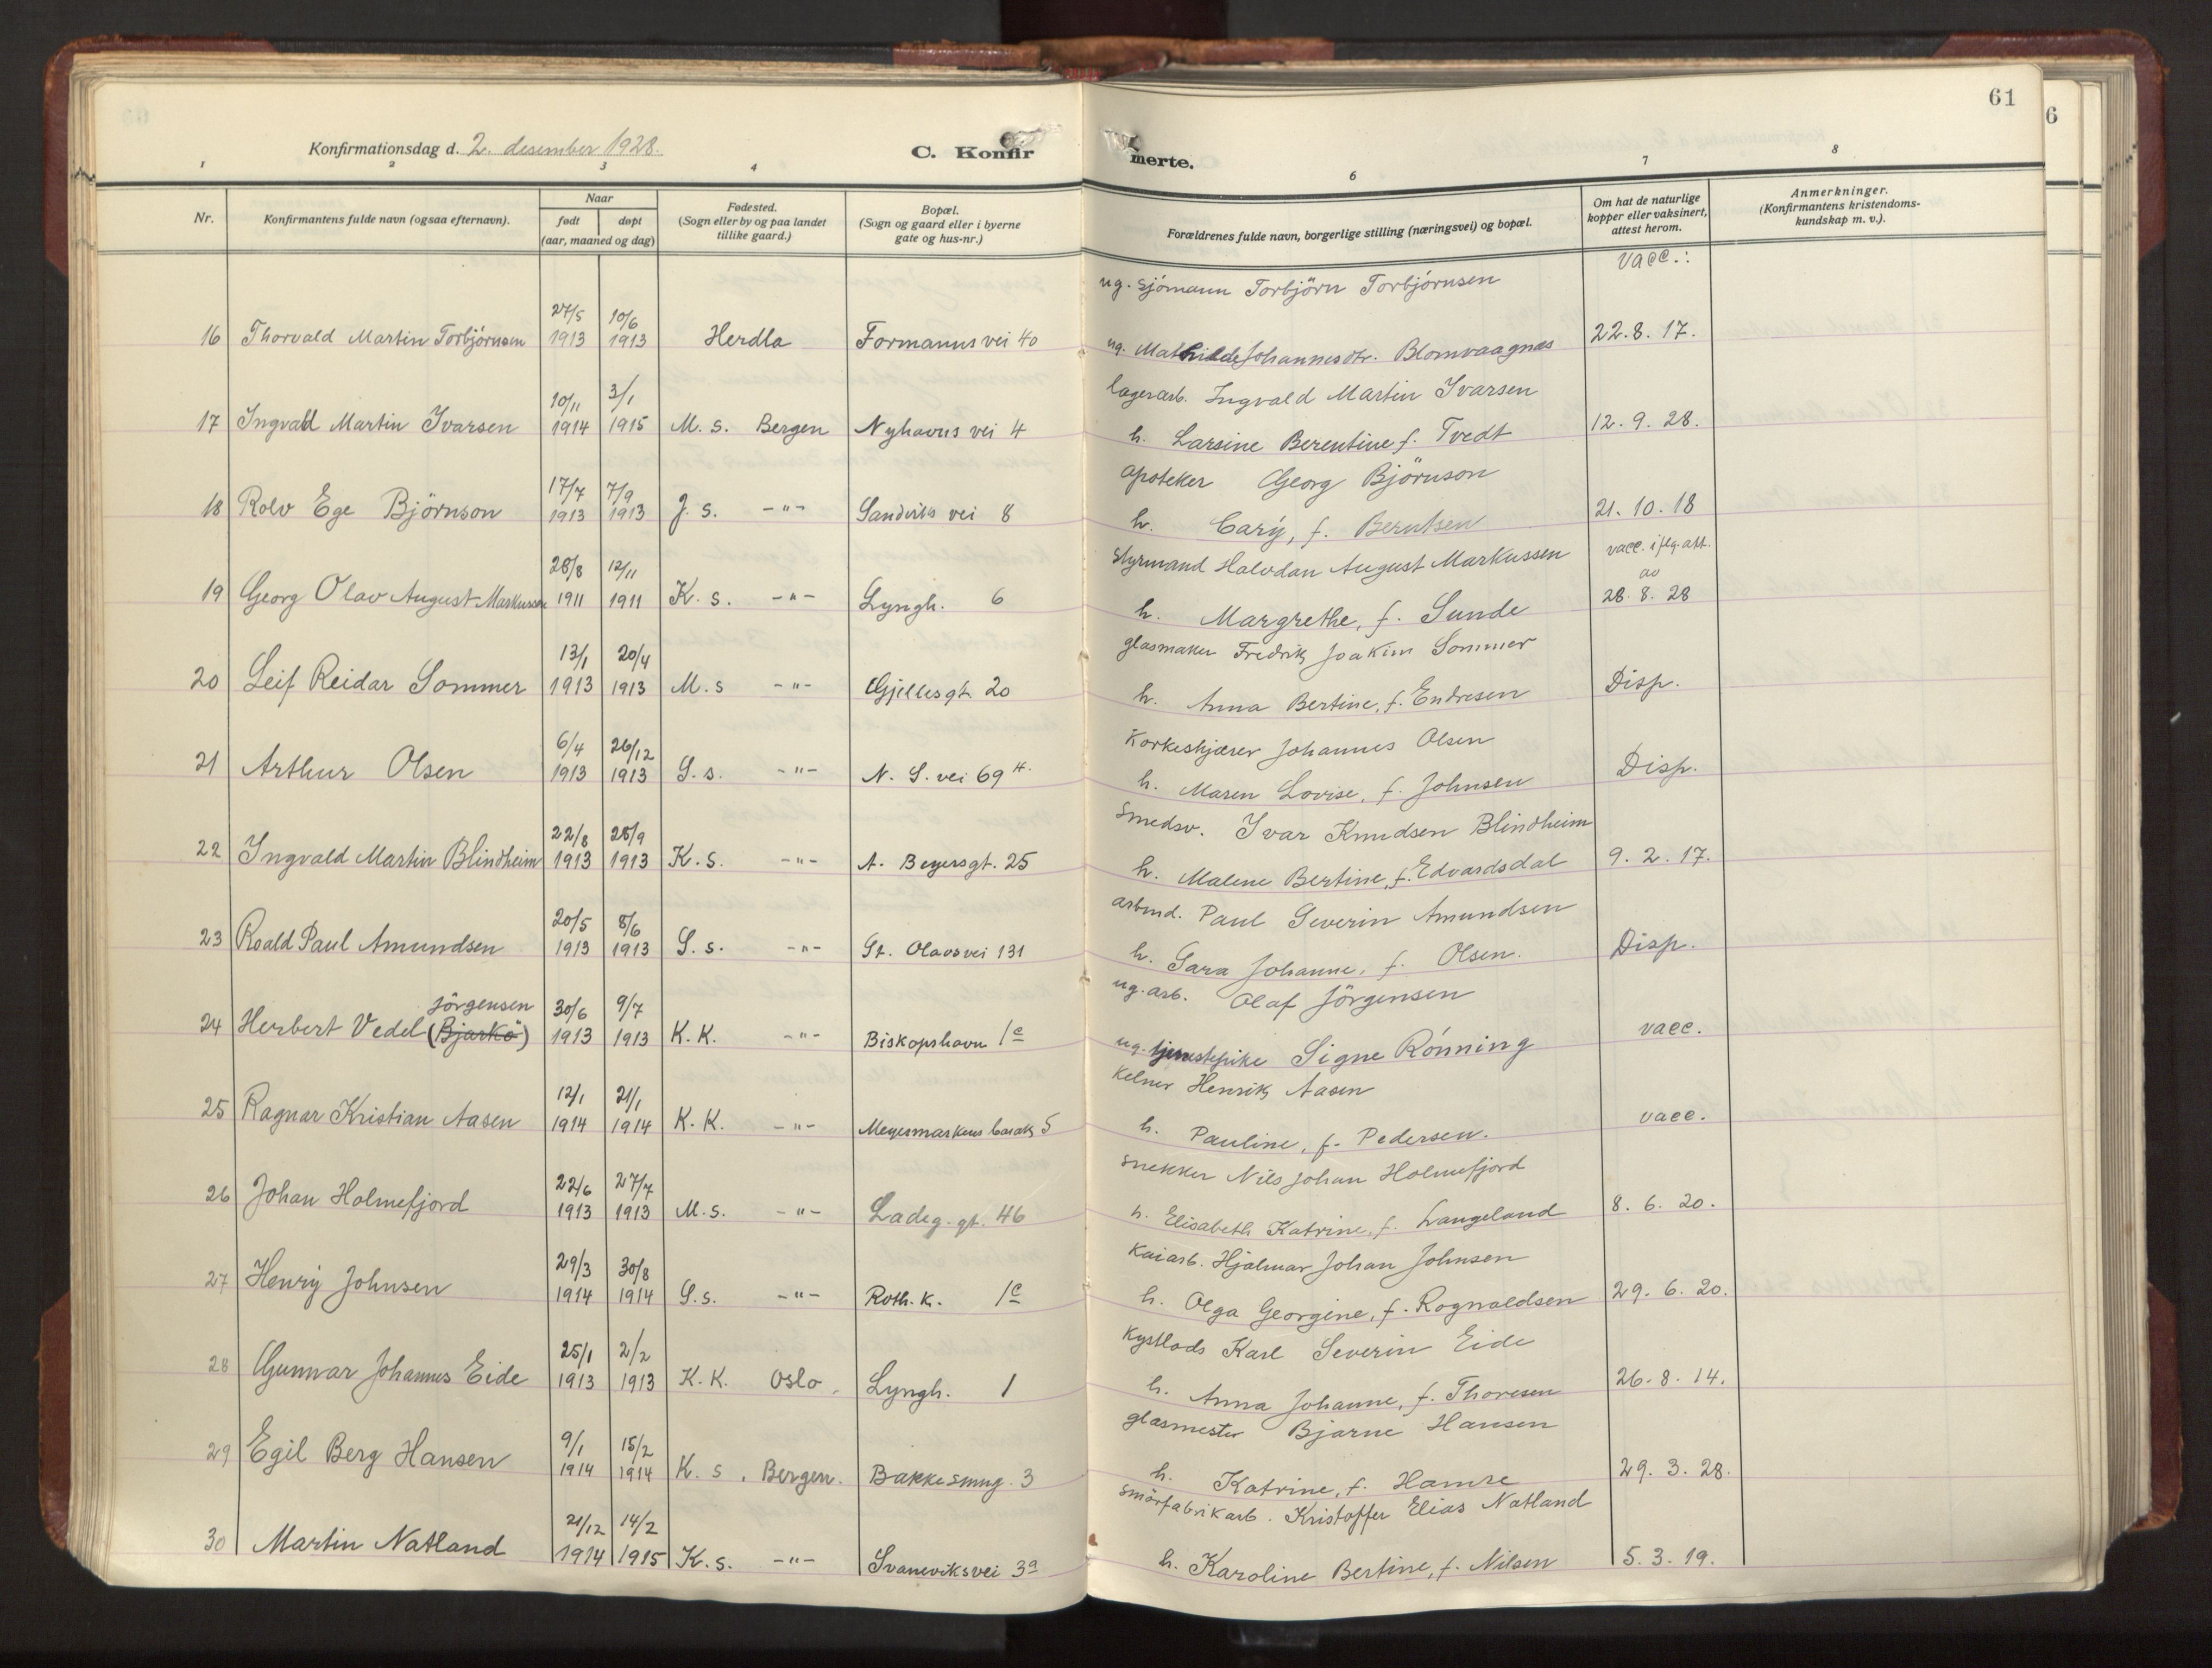 61
6
Konfirmationsdag d. 2. desember 1928.
C. Konfirmerte.
1 2 3 4 6 7 8
Nr.
Konfirmantens fulde navn (ogsaa efternavn).
Naar
født døpt
(aar, maaned og dag)
Fødested.
(Sogn eller by og paa landet
tillike gaard.)
Bopæl.
(Sogn og gaard eller i byerne
gate og hus-nr.)
Forældrenes fulde navn, borgerlige stilling (næringsvei) og bopæl.
Om hat de naturlige
kopper eller vaksinert,
attest herom.
Anmerkninger.
(Konfirmantens kristendoms-
kundskap m. v.).
vacc.:
27/5 10/6 ug. sjömann Torbjörn Torbjörnsen
16 Thorvald Martin Torbjörnsen 1913 1913 Herdla Formanns vei 40 ug. Mathilde Johannesdtr. Blomvaagnes 22.8.17.
10/11 3/1 lagerarb. Ingvald Martin Ivarsen
17 Ingvald Martin Ivarsen 1914 1915 M. s. Bergen Nyhavns vei 4 h. Larsine Berentine f. Tvedt 12.9.28.
17/7 7/9 apoteker Georg Björnson
18 Rolv Ege Björnson 1913 1913 J. s. -"- Sandviks vei 8 h. Cary, f. Berntsen 21.10.18
28/8 12/11 styrmand Halvdan August Markussen vacc. iflg. att.
av
19 Georg Olav August Markussen 1911 1911 K. s. -"- Lyngh. 6 h. Margrethe, f. Sunde 28.8.28
13/1 20/4 glasmaker Fredrik Joakim Sommer
20 Leif Reidar Sommer 1913 1913 M. s -"- Gjellesgt. 20 h. Anna Bertine, f. Endresen Disp.
6/4 26/12 Korkeskjærer Johannes Olsen
21 Arthur Olsen 1913 1913 S. s. -"- N. S. vei 69 h. Maren Lovise, f. Johnsen Disp.
22/8 28/9 smedsv. Ivar Knudsen Blindheim
22 Ingvald Martin Blindheim 1913 1913 K. s. -"- A. Beyersgt. 25 h. Malene Bertine, f. Edvardsdal 9.2.17.
20/5 8/6 arbmd. Paul Severin Amundsen
23 Roald Paul Amundsen 1913 1913 S. s. -"- St. Olavs vei 131 h. Sara Johanne, f. Olsen. Disp.
Jörgensen 30/6 9/7 ug. arb. Olaf Jörgensen
24 Herbert Vedel (Bjarkö) 1913 1913 K. K. -"- Biskopshavn 1c ug. tjenestepike Signe Rönning vacc.
12/1 21/1 Kelner Henrik Aasen
25 Ragnar Kristian Aasen 1914 1914 K. K. -"- Meyermarkens barak 5 h. Pauline, f. Pedersen. vacc.
22/6 27/7 snekker Nils Johan Holmefjord
26 Johan Holmefjord 1913 1913 M. s. -"- Ladeg. gt. 46 h. Elisabeth Katrine, f. Langeland 8.6.20.
29/3 30/8 Kaiarb. Hjalmar Johan Johnsen
27 Henry Johnsen 1914 1914 S. s. -"- Roth. k. 1c h. Olga Georgine, f. Rognaldsen 29.6.20.
25/1 2/2 Kystlods Karl Severin Eide
28 Gunnar Johannes Eide 1913 1913 K. K. Oslo. Lyngh. 1 h. Anna Johanne, f. Thoresen 26.8.14.
9/1 15/2 glasmester Bjarne Hansen
29 Egil Berg Hansen 1914 1914 K. s. Bergen. Bakkesmug. 3 h. Katrine, f. Hamre 29.3.28.
21/12 14/2 smörfabrikarb. Kristoffer Elias Natland
30 Martin Natland 1914 1915 K. s. -"- Svaneviksvei 3a h. Karoline Bertine, f. Nilsen 5.3.19.